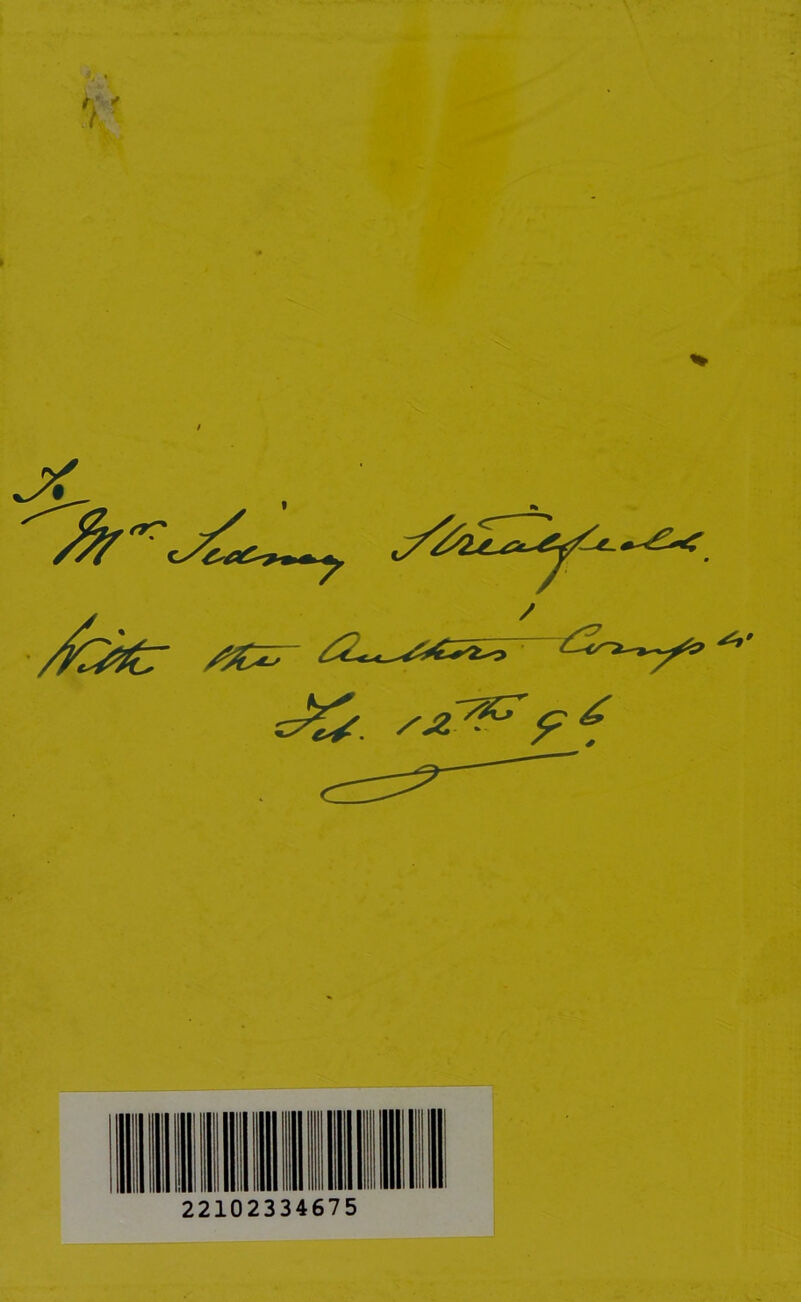 To
Mr. Sidney Streatfeild.
With the Author's Comp ts
Feb. 12th 96
22102334675